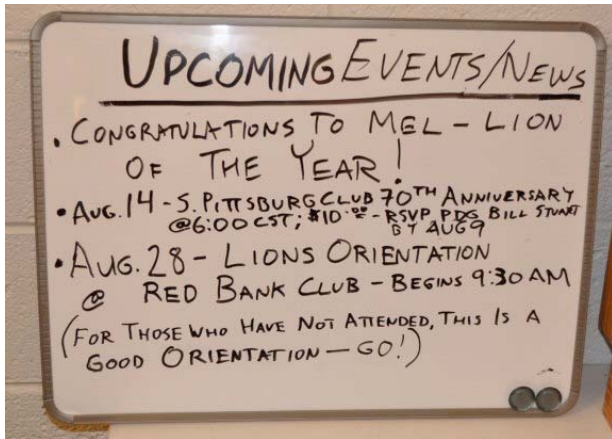 UPCOMING EVENTS/NEWS
• CONGRATULATIONS TO MEL – LION
OF THE YEAR!
• AUG. 14 – S. PITTSBURG CLUB 70TH ANNIVERSARY
@6:00 CST; $10.00 – RSVP PDG BILL
BY AUG 9
• AUG. 28 – LIONS ORIENTATION
@ RED BANK CLUB – BEGINS 9:30 AM
(FOR THOSE WHO HAVE NOT ATTENDED, THIS IS A
GOOD ORIENTATION – GO!)